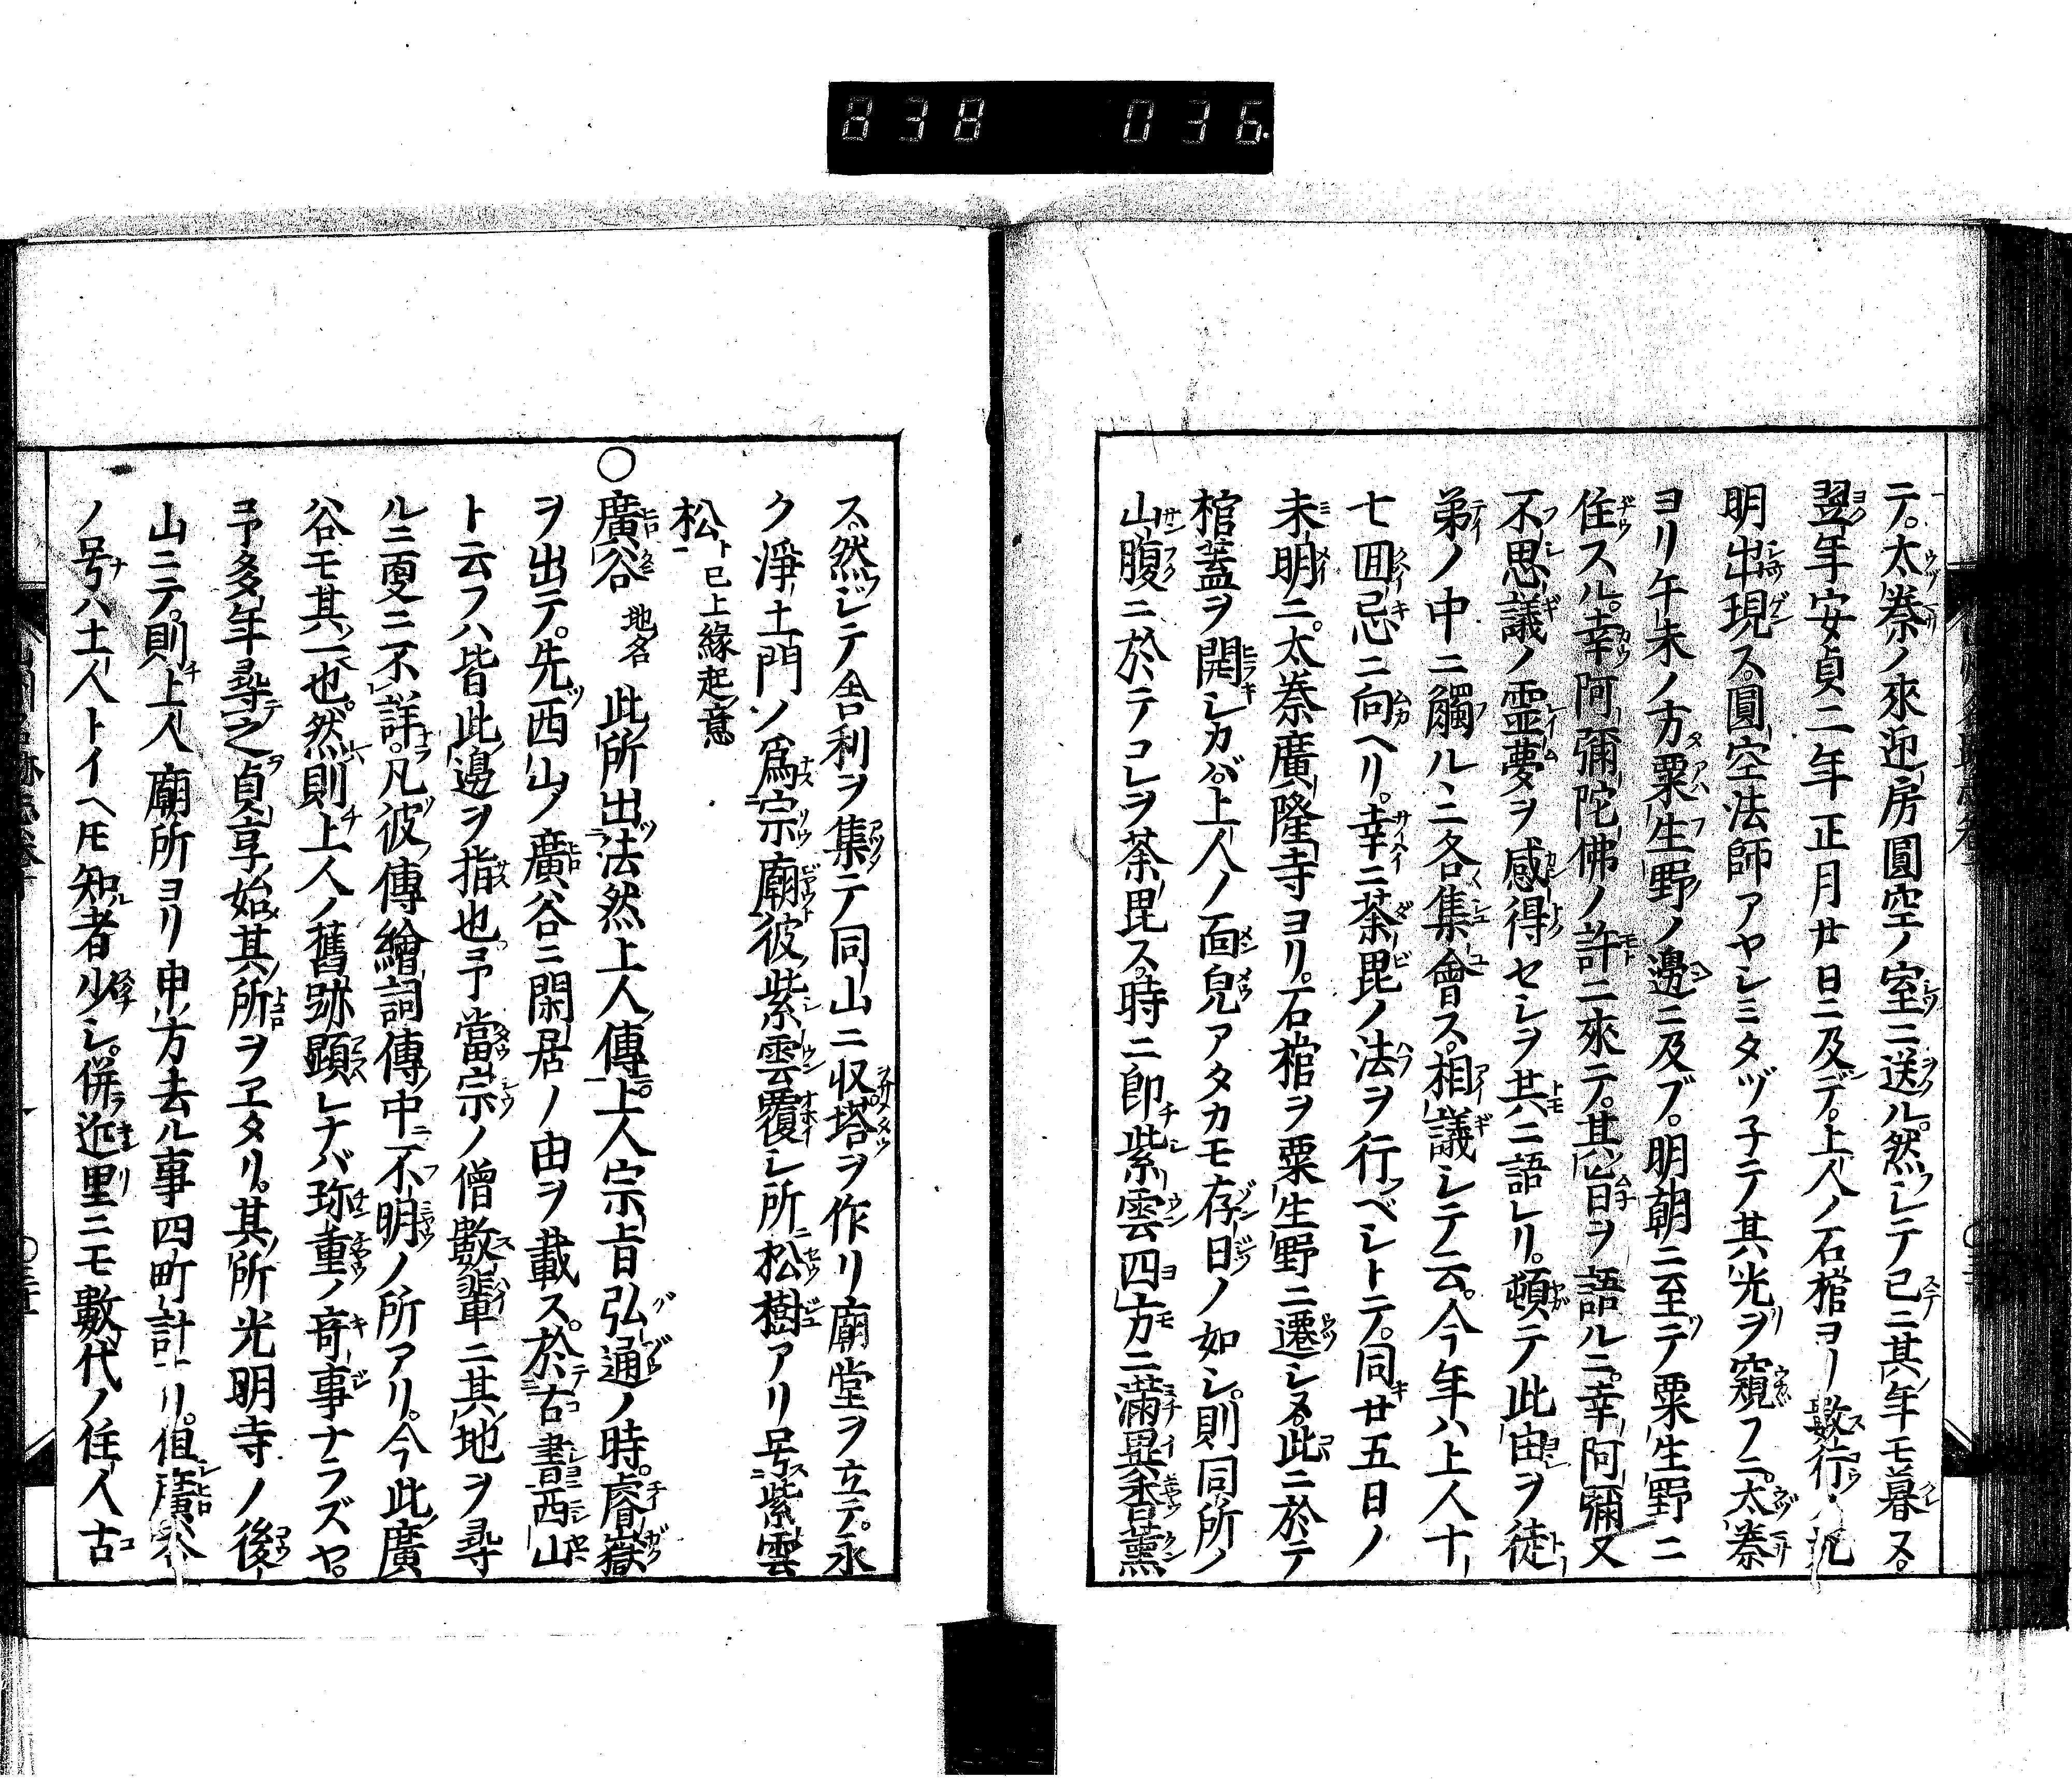 838 036
テ。太秦ノ來迎房圓空ノ室ニ送ル。然シテ已ニ其年モ暮ヌ。
翌年安貞二年正月廿日ニ及デ。上人ノ石棺ヨリ數行ノ光
明出現ス。圓空法師アヤシミタヅ子テ其光ヲ窺フニ。太秦
ヨリ午未ノ方粟生野ノ邊ニ及ブ。明朝ニ至テ粟生野ニ
住スル。幸阿彌陀佛ノ許ニ來テ。其旨ヲ語ルニ。幸阿彌又
不思議ノ靈夢ヲ感得セシヲ共ニ語レリ。頓テ此由ヲ徒
弟ノ中ニ觸ルヽニ各集會ス。相議シテ云。今年ハ上人十
七囬忌ニ向ヘリ。幸ニ荼毘ノ法ヲ行ベシトテ。同廿五日ノ
未明ニ。太秦廣隆寺ヨリ。石棺ヲ粟生野ニ遷シヌ。此ニ於テ
棺蓋ヲ開シカバ。上人ノ面皃アタカモ存日ノ如シ。則同所ノ
山腹ニ於テコレヲ荼毘ス。時ニ即紫雲四方ニ滿異香薫
ス。然シテ舎利ヲ集テ同山ニ収塔ヲ作リ廟堂ヲ立テ。永
ク淨土門ノ爲宗廟彼紫雲覆シ所ニ松樹アリ号紫雲
松ト 已上緣起ノ意
○廣谷 地名 此所出法然上人傳上人宗旨弘通ノ時。睿嶽
ヲ出テ。先西山ノ廣谷ニ閑居ノ由ヲ載ス。於古書西山
ト云フハ皆此邊ヲ指也予當宗ノ僧數輩ニ其地ヲ尋
ルニ更ニ不詳。凡彼傳繪詞傳中ニ不明ノ所アリ。今此廣
谷モ其一也。然則上人ノ舊跡顕レナバ珎重ノ竒事ナラズヤ。
予多年尋之貞享始其所ヲヱタリ。其所光明寺ノ後
山ニテ。則上人廟所ヨリ申方去ル事四町計ナリ。但廣谷
ノ号ハ土人トイヘ𪜈知者少シ。併近里ニモ數代ノ住人古